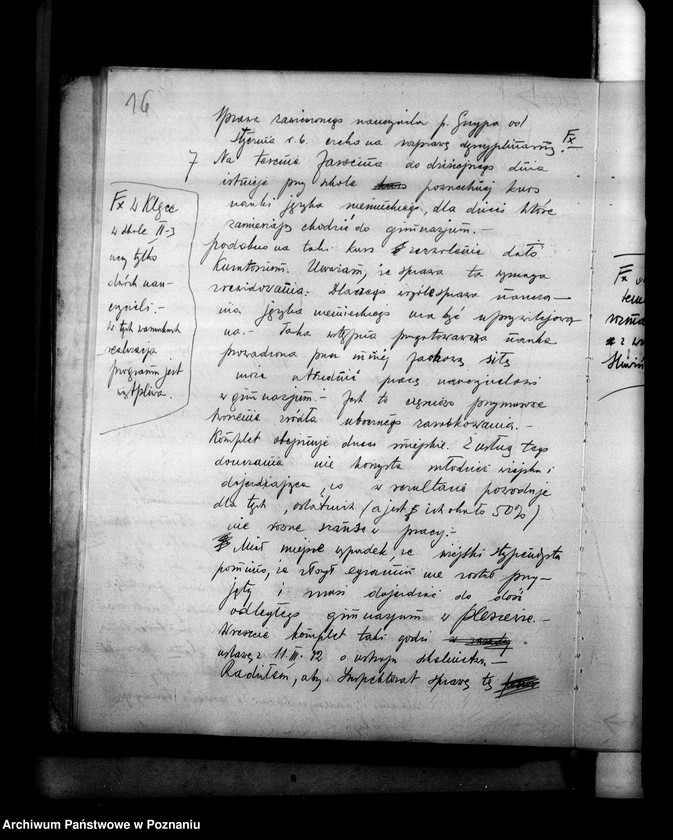 16
Sprawa zawieszonego nauczyciela p. od
stycznia r.b. czeka na rozprawę dyscyplinarną. Fx
7 Na terenie Jarocina do dzisiejszego dnia
istnieje przy szkole powszechnej kurs
nauki języka niemieckiego, dla dzieci które
zamierzają chodzić do gimnazjum.-
podobno na taki kurs zezwolenie dało
Kuratorium. Uważam, że sprawa ta wymaga
zrewidowania. Dlaczego sprawa naucza-
nia języka niemieckiego ma być uprzywilejowa
na.- Taka wstępna przygotowawcza nauka
prowadzona przez mniej fachową siłę
może utrudnić pracę nauczycielowi
w gimnazjum.- Jest to częściowo przymusowe
tworzenie źródła ubocznego zarobkowania.-
Komplet obejmuje dzieci miejskie. Z usług tego
nie korzysta młodzież wiejska i
dojeżdżająca, co w rezultacie powoduje
dla tych ostatnich (a jest ich około 50%)
nie równe szanse w pracy.-
Miał miejsce wypadek, że wiejski stypendysta
pomimo, że złożył egzamin nie został przy-
jęty i musi dojeżdżać do dość
odległego gimnazjum w Pleszewie.-
Wreszcie komplet taki godzi
ustawę z 11 III. 32 o ustroju szkolnictwa.-
Radziłem, aby Inspektorat sprawę tę
Fx w Kłęce
w szkole III-3
uczy tylko
dwóch nau-
czycieli.-
w tych warunkach
realizacja
programu jest
wątpliwa.
Fx
Archiwum Państwowe w Poznaniu